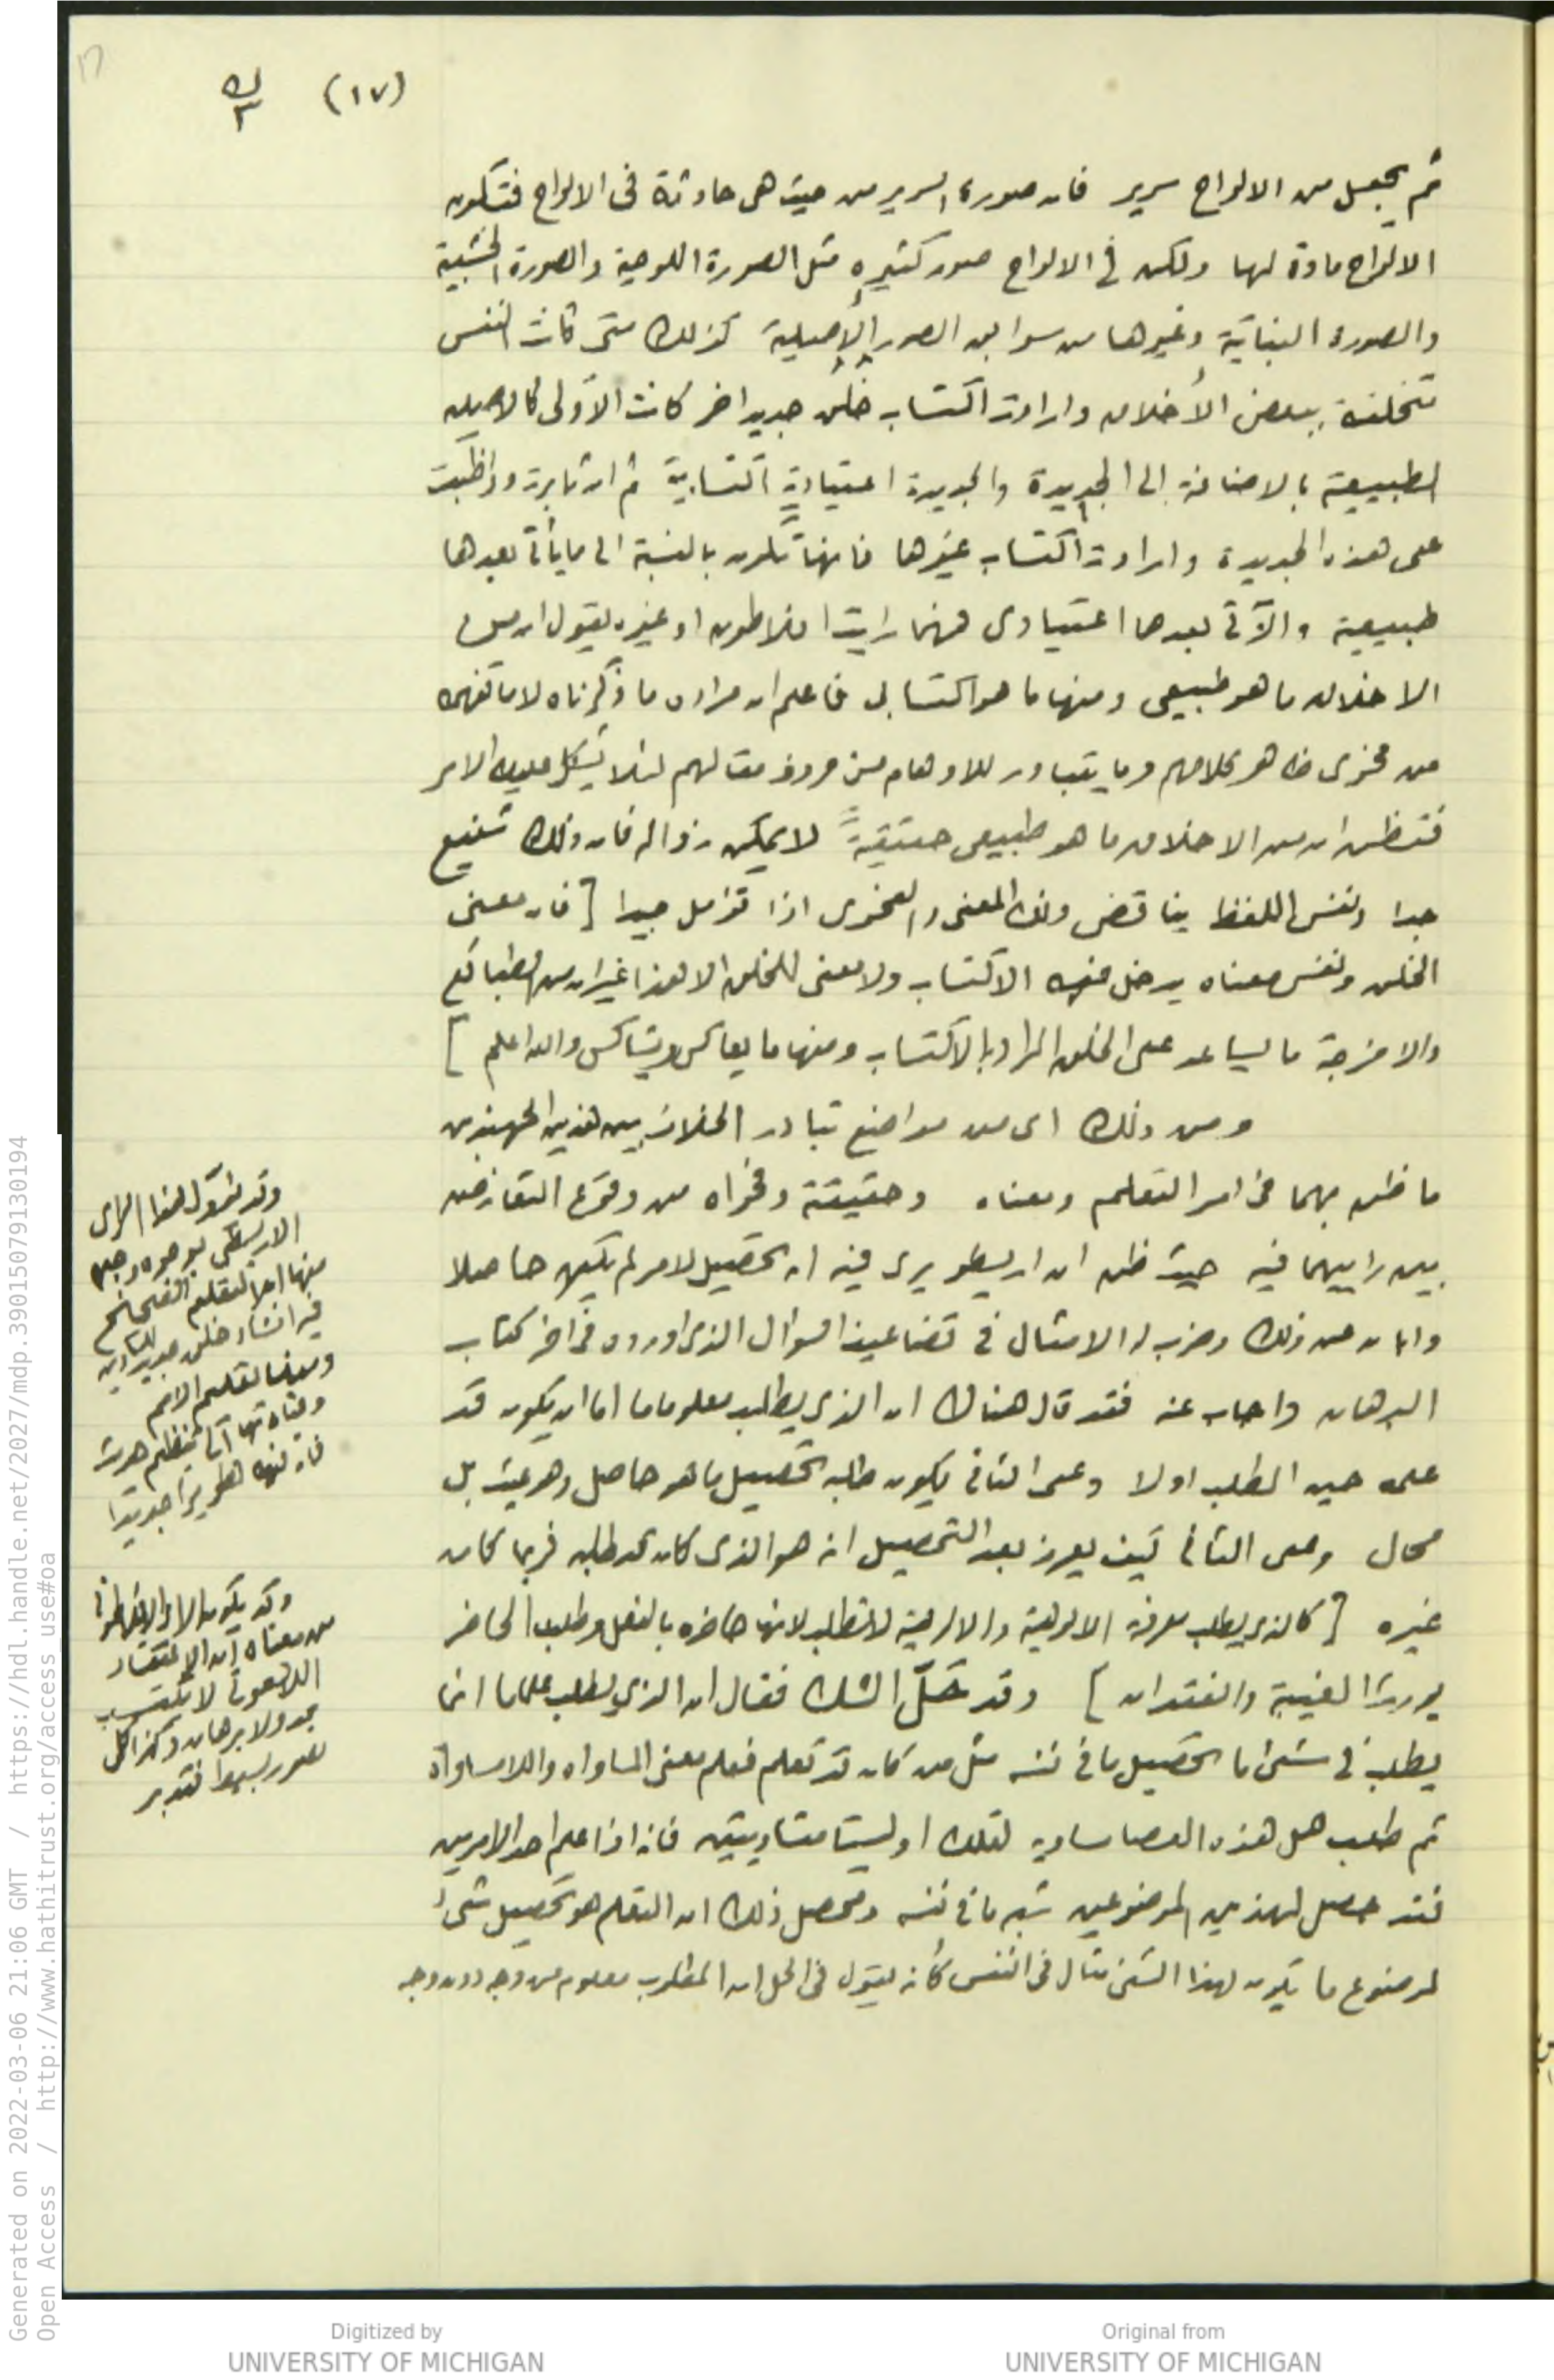 (١٧)
ثم يجعل من الالواح سرير فان صورة السرير من حيث هى حادثة فى الالواح فتكون
الالواح مادة لها ولكن في الالواح صور كثيره مثل الصورة اللوحية والصورة الخشبية
والصورة النباتية وغيرها من سوابق الصور الأصيلية كذلك متى كانت النفس
تتخلقة ببعض الأخلاق وارادت اكتساب خلق جديد اخر كانت الأولى كالاصيله
الطبيعية بالاضافة الى الجديدة والجديدة اعتيادية اكتسابية ثم ان ثابرت وواظبت
على هذه الجديدة وارادت اكتساب غيرها فانها تكون بالنسبة الى ما يأتى بعدها
طبيعية والآتى بعدها اعتيادى فمهما رايت افلاطون او غيره يقول ان من
الاخلاق ما هو طبيعى ومنها ما هو اكتسابى فاعلم ان مراده ما ذكرناه لا ما تفهمه
من فحوى ظاهر كلامهم وما يتبادر للاوهام من حروف مقالهم لئلا يشكل عليك الامر
فتظن ان من الاخلاق ما هو طبيعى حقيقةً لا يمكن زواله فان ذلك شنيع
جدا ونفس اللفظ يناقض ذلك المعنى والفحوى اذا تؤمل جيدا [ فان معنى
الخلق ونفس معناه يدخل فيه الاكتساب ولا معنى للخلق الا هذا غير ان من الطبائع
والامزجة ما يساعد على الخلق المراد بالاكتساب ومنها ما يعاكس ويشاكس والله اعلم ]
ومن ذلك اى من مواضع تبادر الخلاف بين هذين الجهبذين
ما ظن بهما فى امر التعلم ومعناه وحقيقة وفحواه من وقوع التعارض
بين راييهما فيه حيث ظن ان ارسطو يرى فيه انه تحصيل لامر لم يكن حاصلا
وابان عن ذلك وضرب له الامثال في تضاعيف السوال الذى اورده فى اخر كتاب
البرهان واجاب عنه فقد قال هناك ان الذى يطلب معلوما ما اما ان يكون قد
علمه حين الطلب اولا وعلى الثانى يكون طلبه تحصيل ما هو حاصل وهو عيث بل
محال وعلى الثانى كيف يعرف بعد التحصيل انه هو الذى كان قد طلبه فربما كان
غيره [ كالذى يطلب معرفة الالوهية والالوهية لا تطلب لانها حاضره بالفعل وطلب الحاضر
يورث الغيبة والفقدان ] وقد حَلّ الشك فقال ان الذى يطلب علما ما انما
يطلب في شئ ما تحصيل ما في نفسه مثل من كان قد تعلم فعلم معنى المساواه واللامساواه
ثم طلب هل هذه العصا مساوية لتلك او ليستا متساويتين فانه اذا علم احد الامرين
فقد حصل لهذين الموضوعين شبه ما في نفسه ومحصل ذلك ان التعلم هو تحصيل شئ
لموضوع ما يكون لهذا الشئ مثال فى النفس كأنه يقول فى الحل ان المطلوب معلوم من وجه دون وجه
وقد يقول هذا الراى
منها ان التعلم
فيه انشاء خلق جديد
ومنها تعلم الامم
من معناه ان الاعتقاد
اللاهوتى لا يكتسب
بجد ولا برهان وكذا كل
فتدبر
Digitized by
UNIVERSITY OF MICHIGAN
Original from
UNIVERSITY OF MICHIGAN
Generated on 2022-03-06 21:06 GMT / https://hdl.handle.net/2027/mdp.39015079130194
Open Access / http://www.hathitrust.org/access_use#oa